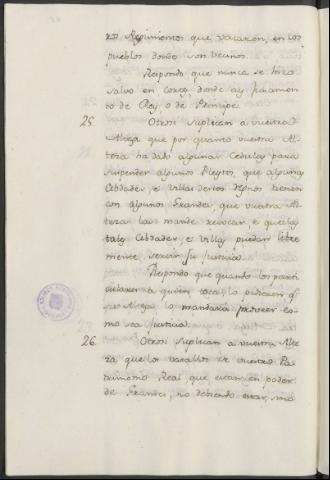 ros Regimientos que vacaren, en los
pueblos donde son vecinos.
Respondo que nunca se hizo
salvo en cortes donde ay juramen
to de Rey, o de Principe
25. Otrosi suplican a vuestra
Alteza que por quanto vuestra Al
teza ha dado algunas Cedulas para
suspender algunos Pleytos, que algunas
Cibdades, e Villas destos Reynos tienen
con algunos Grandes que vuestra Al
teza las mande revocar, e que las
tales Cibdades, e Villas puedan libre
mente seguir su justicia.
Respondo que quando los parti
culares a quien toca lo pidieren
su Alteza lo mandará proveer co
mo sea justicia.
26. Otrosi suplican a vuestra Alte
za que los vasallos de vuestro Pa
trimonio Real que estan en poder
de Grandes, no debiendo estar,